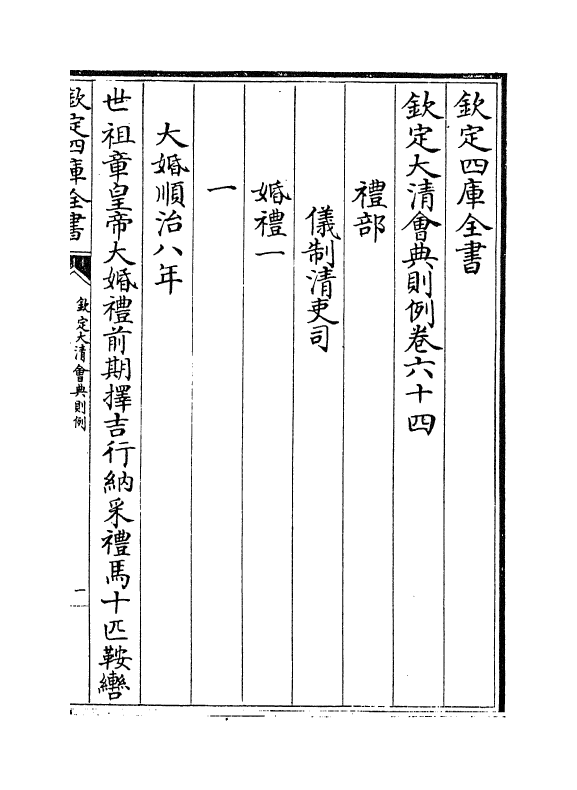 欽定四庫全書
欽定大清會典則例卷六十四
禮部
儀制清吏司
婚禮一
一
大婚順治八年
世祖章皇帝大婚禮前期擇吉行納采禮馬十匹鞍轡
欽定四庫全書
欽定大清會典則例
一